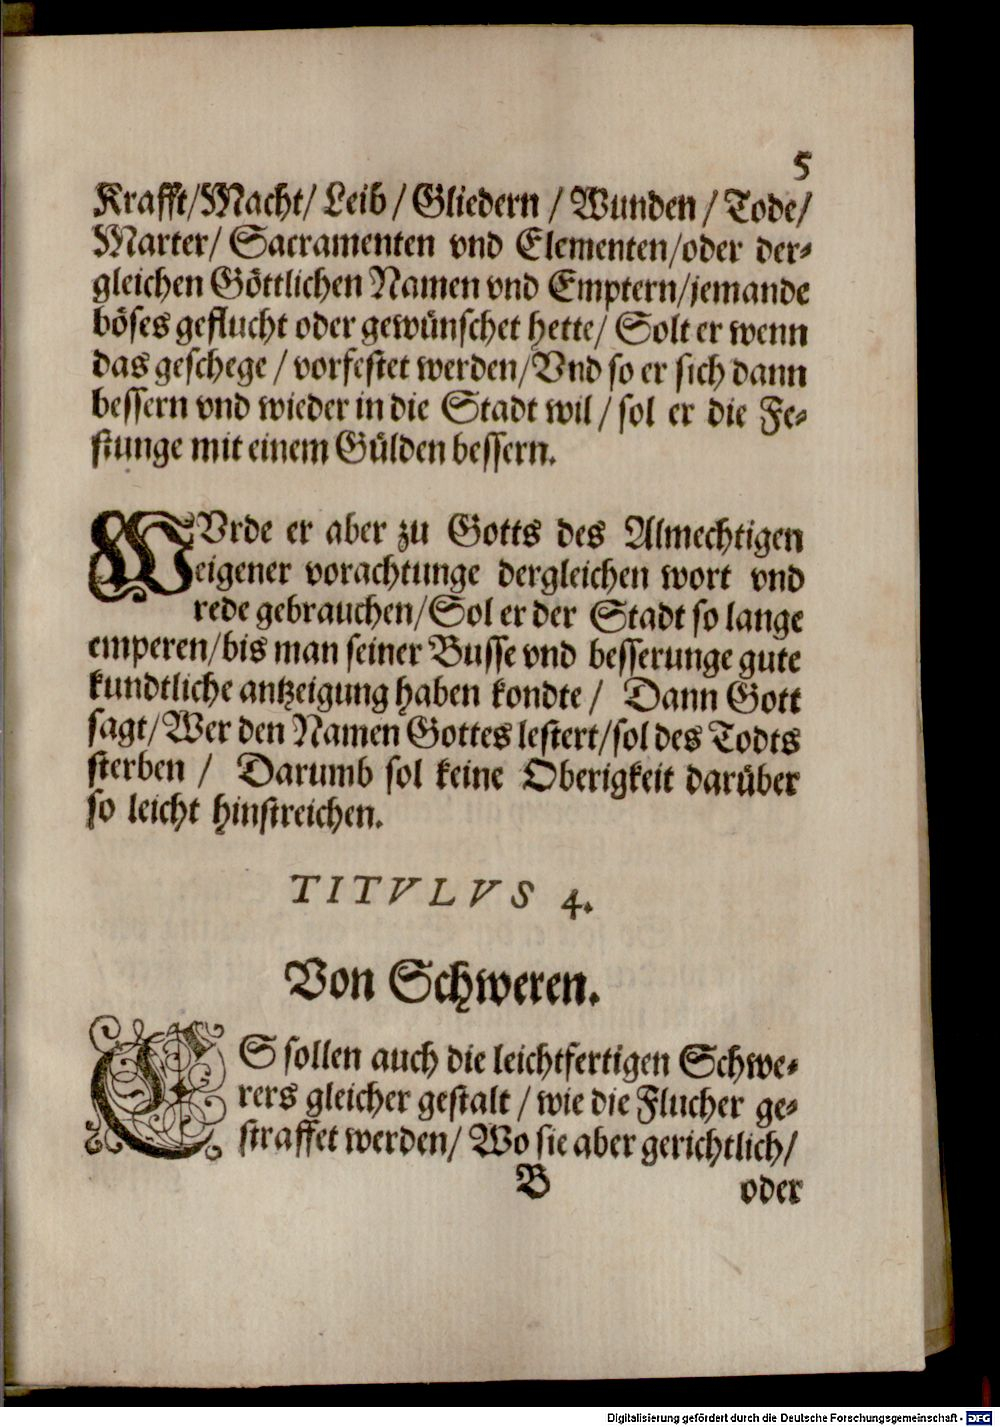 5
Krafft/Macht/ Leib / Gliedern / Wunden / Tode/
Marter/ Sacramenten vnd Elementen/oder der-
gleichen Göttlichen Namen vnd Emptern/jemande
böses geflucht oder gewünschet hette/ Solt er wenn
das geschege / vorfestet werden/Vnd so er sich dann
bessern vnd wieder in die Stadt wil / sol er die Fe-
stunge mit einem Gülden bessern.
WVrde er aber zu Gotts des Almechtigen
eigener vorachtunge dergleichen wort vnd
rede gebrauchen/Sol er der Stadt so lange
emperen/bis man seiner Busse vnd besserunge gute
kundtliche antzeigung haben kondte / Dann Gott
sagt/Wer den Namen Gottes lestert/sol des Todts
sterben / Darumb sol keine Oberigkeit darüber
so leicht hinstreichen.
TITVLVS 4.
Von Schweren.
ES sollen auch die leichtfertigen Schwe-
rers gleicher gestalt / wie die Flucher ge-
straffet werden/ Wo sie aber gerichtlich/
B oder
Digitalisierung gefördert durch die Deutsche Forschungsgemeinschaft - DFG